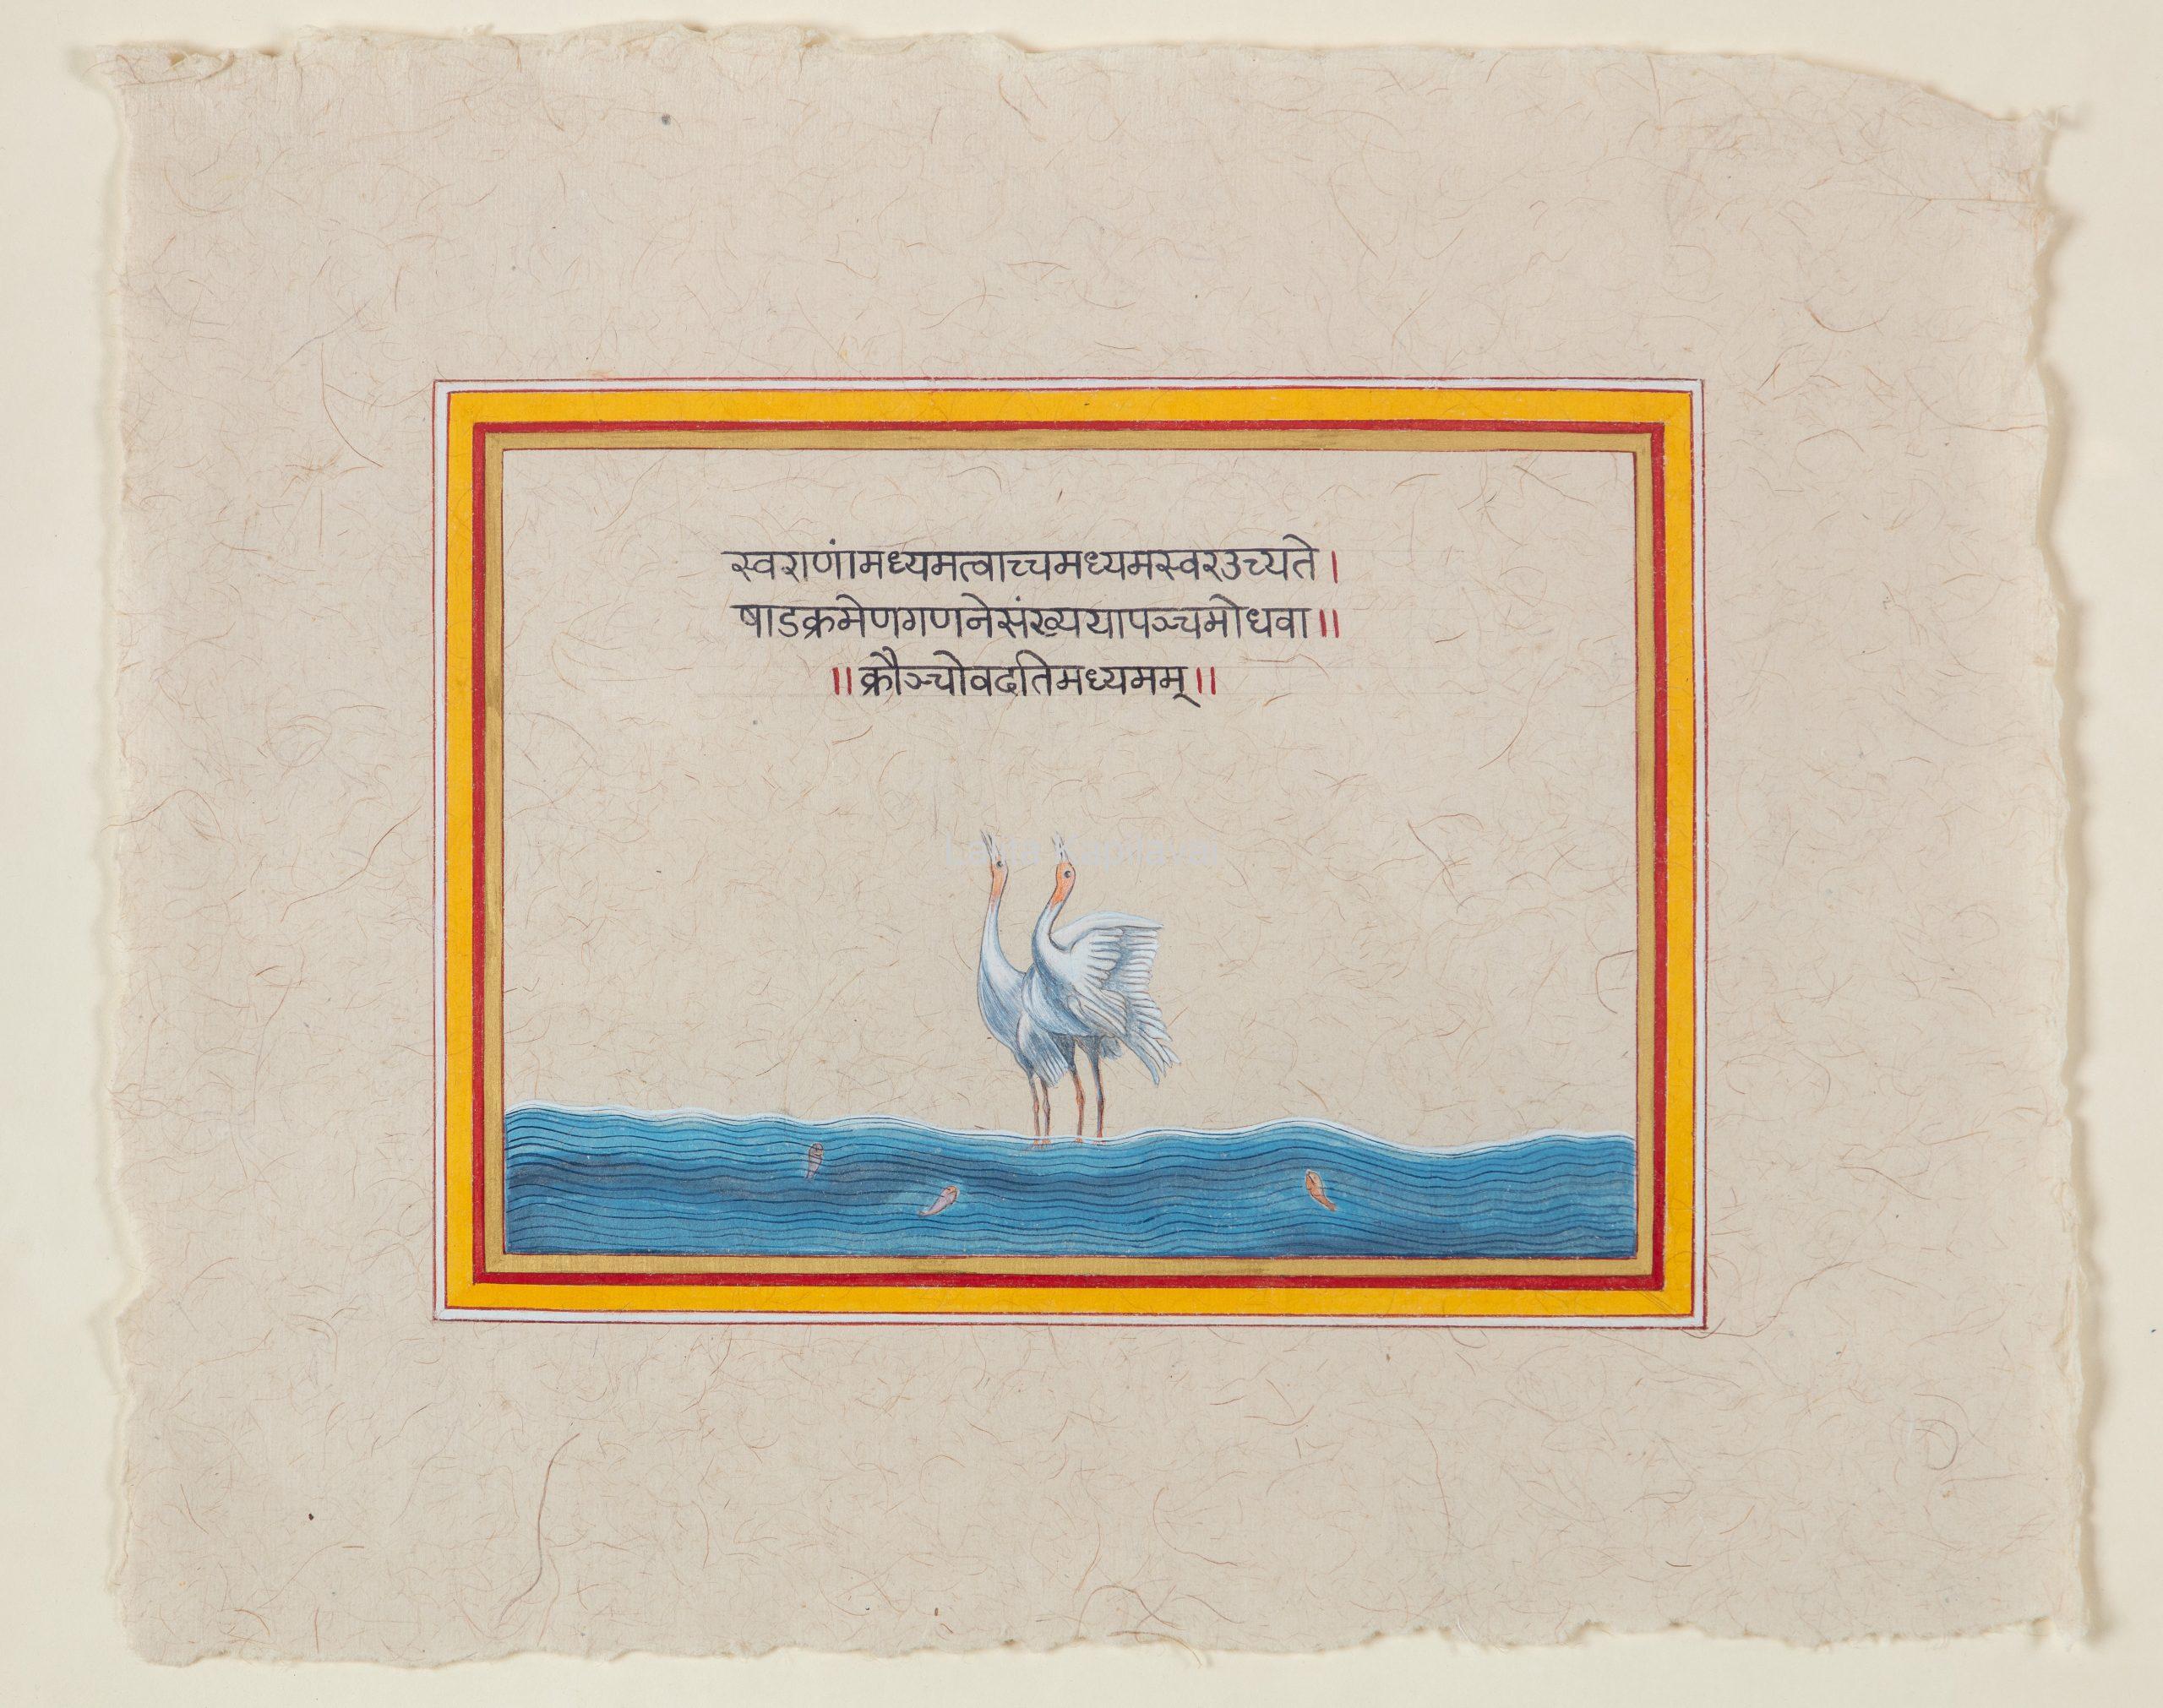 स्वराणांमध्यमत्वाच्चमध्यमस्वरउच्यते।
षाडक्रमेणगणनेसंख्ययापञ्चमोधवा॥
॥क्रौञ्चोवदतिमध्यमम्॥